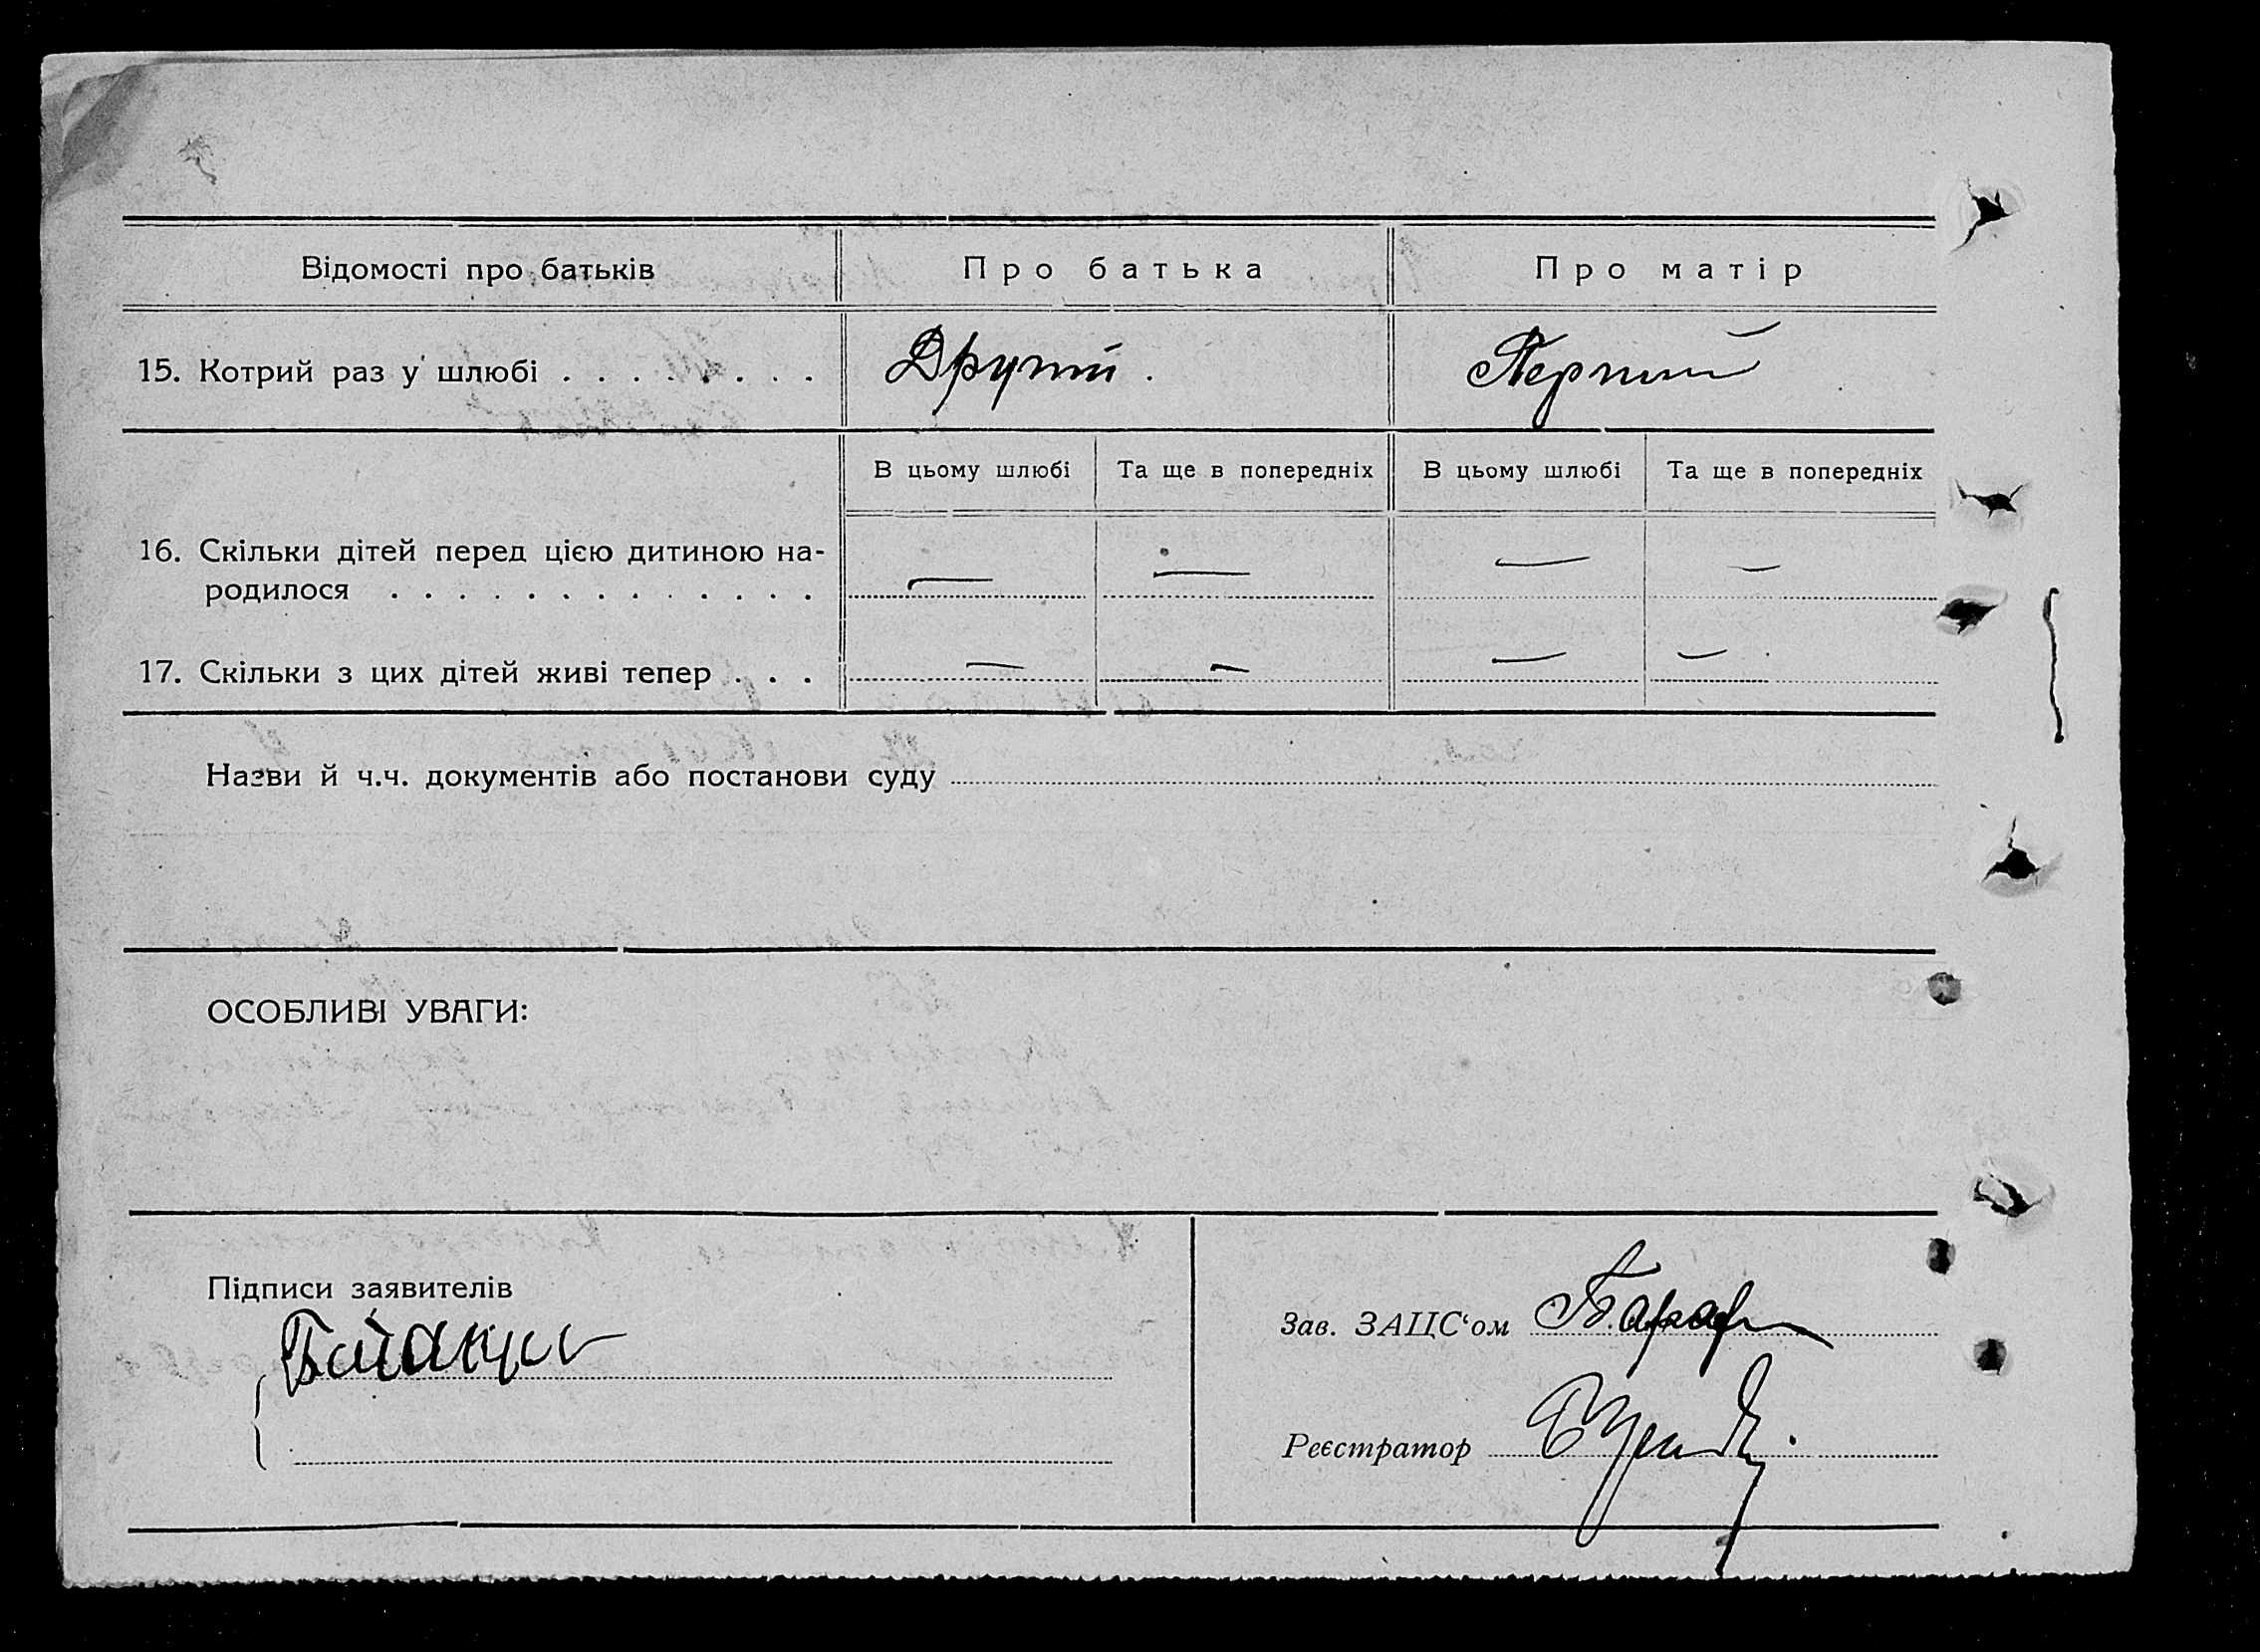 Відомості про батьків Про батька Про матір
15. Котрий раз у шлюбі . . . . . . . . Другий . Перший
В цьому шлюбі Та ще в попередніх В цьому шлюбі Та ще в попередніх
16. Скільки дітей перед цією дитиною на-
родилося . . . . . . . . . . . . . — — — —
17. Скільки з цих дітей живі тепер . . . — — — —
Назви й ч.ч. документів або постанови суду
ОСОБЛИВІ УВАГИ:
Підписи заявителів
Зав. ЗАЦС‘ом
Реєстратор